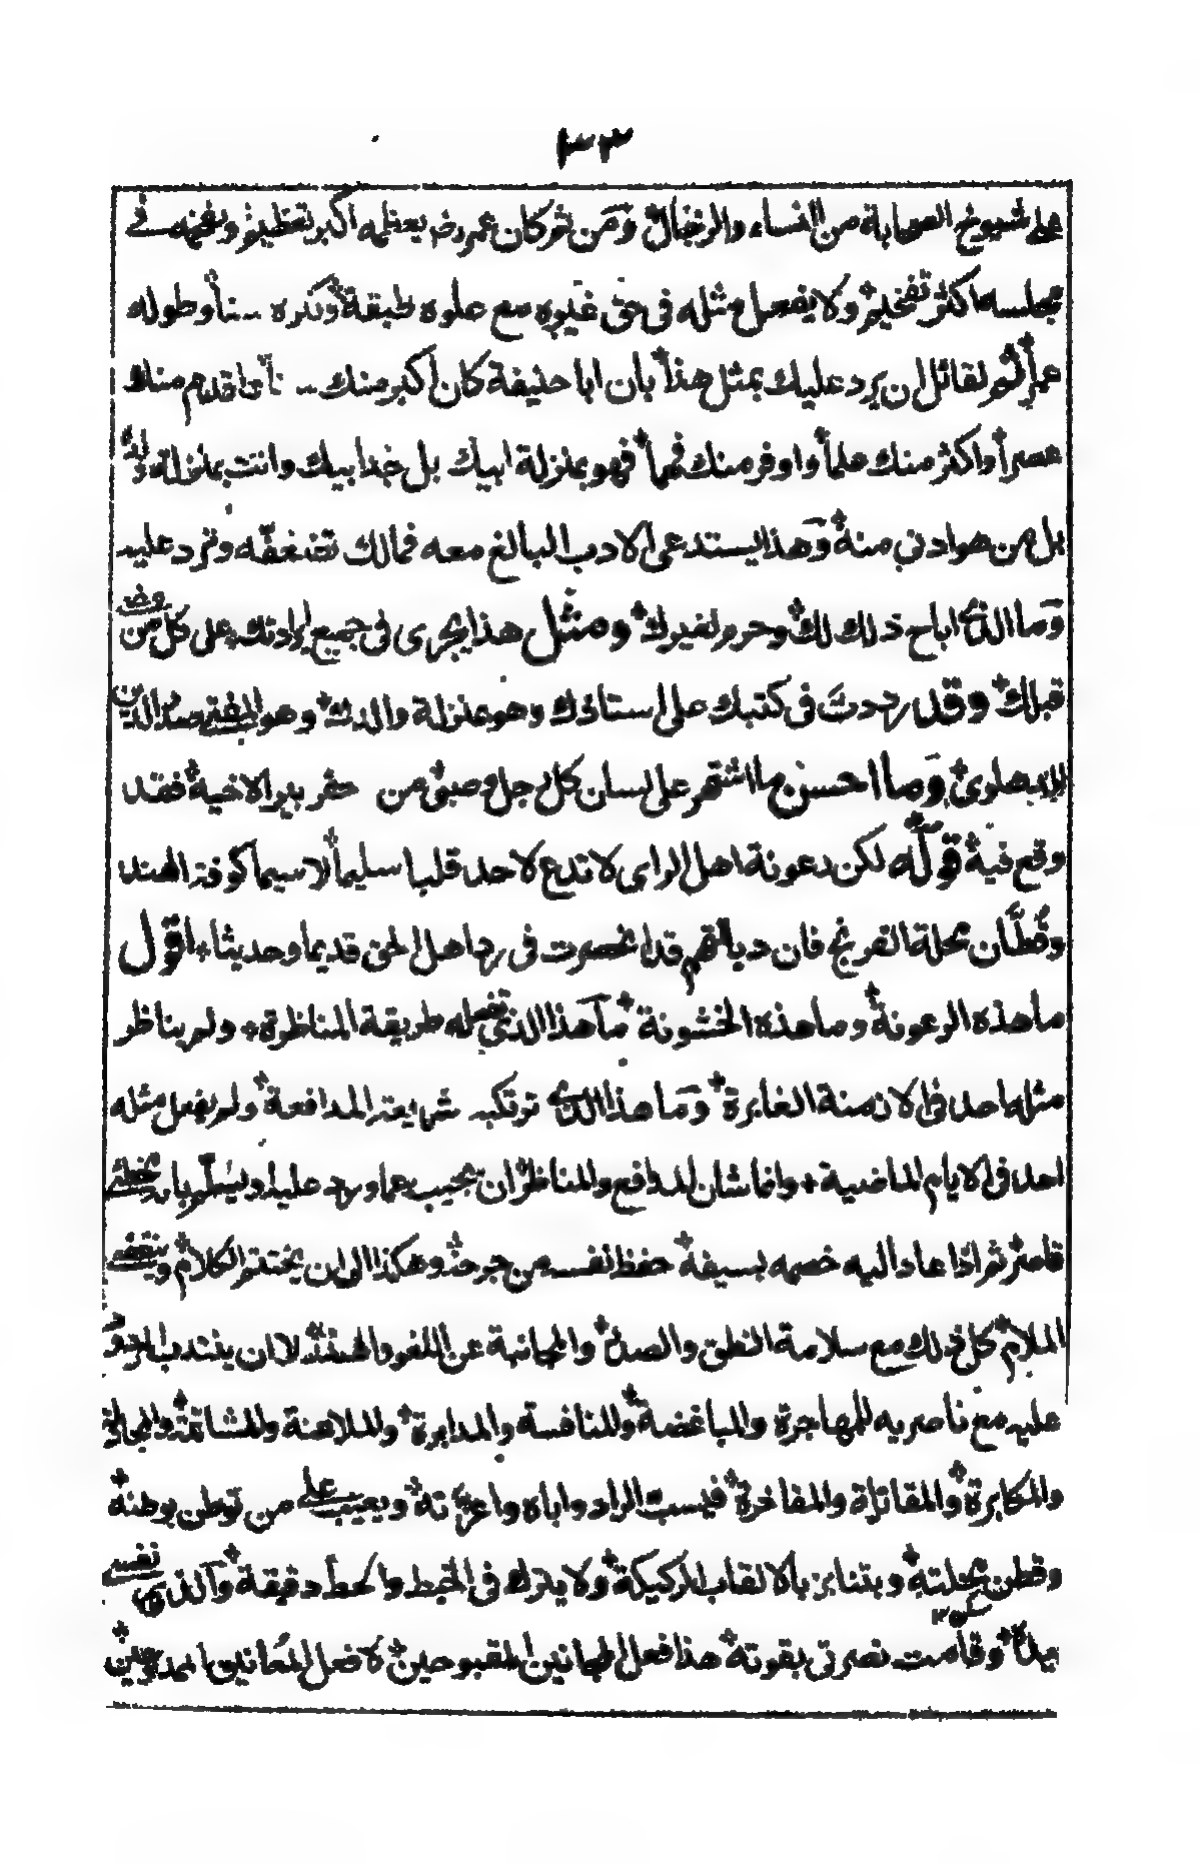 ١٣٣
على شيوخ الصحابة من النساء والرجال ومن ثم كان عمر رض يعظمه اكبر تعظيم ويفخمه في
مجلسه اكثر تفخيم ولا يفعل مثله في حق غيره مع علوه طبقة وكبره سنا وطوله
عمرا ثم لقائل ان يرد عليك بمثل هذا بان ابا حنيفة كان اكبر منك سنا واقدم منك
عصرا واكثر منك علما واوفر منك فهما فهو بمنزلة ابيك بل جد ابيك وانت بمنزلة ولده
بل من هو ادنى منه وهذا يستدعى الادب البالغ معه فمالك تخفقه وترد عليه
وما الذي اباح ذلك لك وحرم لغيرك ومثل هذا يجرى في جميع ايرادتك على كل من مضى
قبلك وقد رددت في كتبك على استاذك وهو بمنزلة والدك وهو المفتي صدر الدين
الدهلوي وما احسن ما اشتهر على لسان كل رجل وصبي من حفر بير الاخيه فقد
وقع فيه قوله لكن رعونة اهل الراى لا تدع لاحد قلبا سليما لا سيما كوفة الهند
وقطان محلة الفرنج فان ديانتهم قد انحصرت في رد اهل الحق قديما وحديثا اقول
ما هذه الرعونة وما هذه الخشونة ما هذا الذي تفعله طريقة المناظرة ولم يناظر
مثله احد في الازمنة الغابرة وما هذا الذي ترتكبه شريعة المدافعة ولم يفعل مثله
احد في الايام الماضية وانما شان المدافع والمناظر ان يجيب عما ورد عليه ويسطر باند
قاصر ثم اذا عاد اليه خصمه بسيفه حفظ نفسه من جرحه وهكذا الى ان يختتم الكلام وينقضي
الملام كل ذلك مع سلامة النطق والصدق والمجانبة عن اللغو والهذر لا ان ينتدب
عليه مع ناصريه للمهاجرة والمباغضة والمنافسة والمدابرة والملاعنة والمشاتمة
والمكابرة والمقاتلة والمفاخرة فيسب الراد واباه واعزته ويعيب على من توطن بوطنه
وقطن بمحلته ويتنابز بالالقاب الركيكة ولا يترك في الخبط والحط دقيقة والذي نفسي
بيده وقامت نصرتي بقوته هذا فعل المجانين المقبوحين لا فعل المعانين الممدوحين